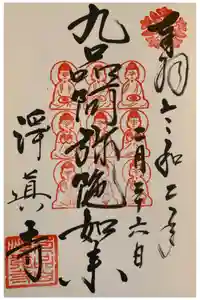 奉拝 令和二年
二月二十六日
九品阿弥陀如来
淨眞寺